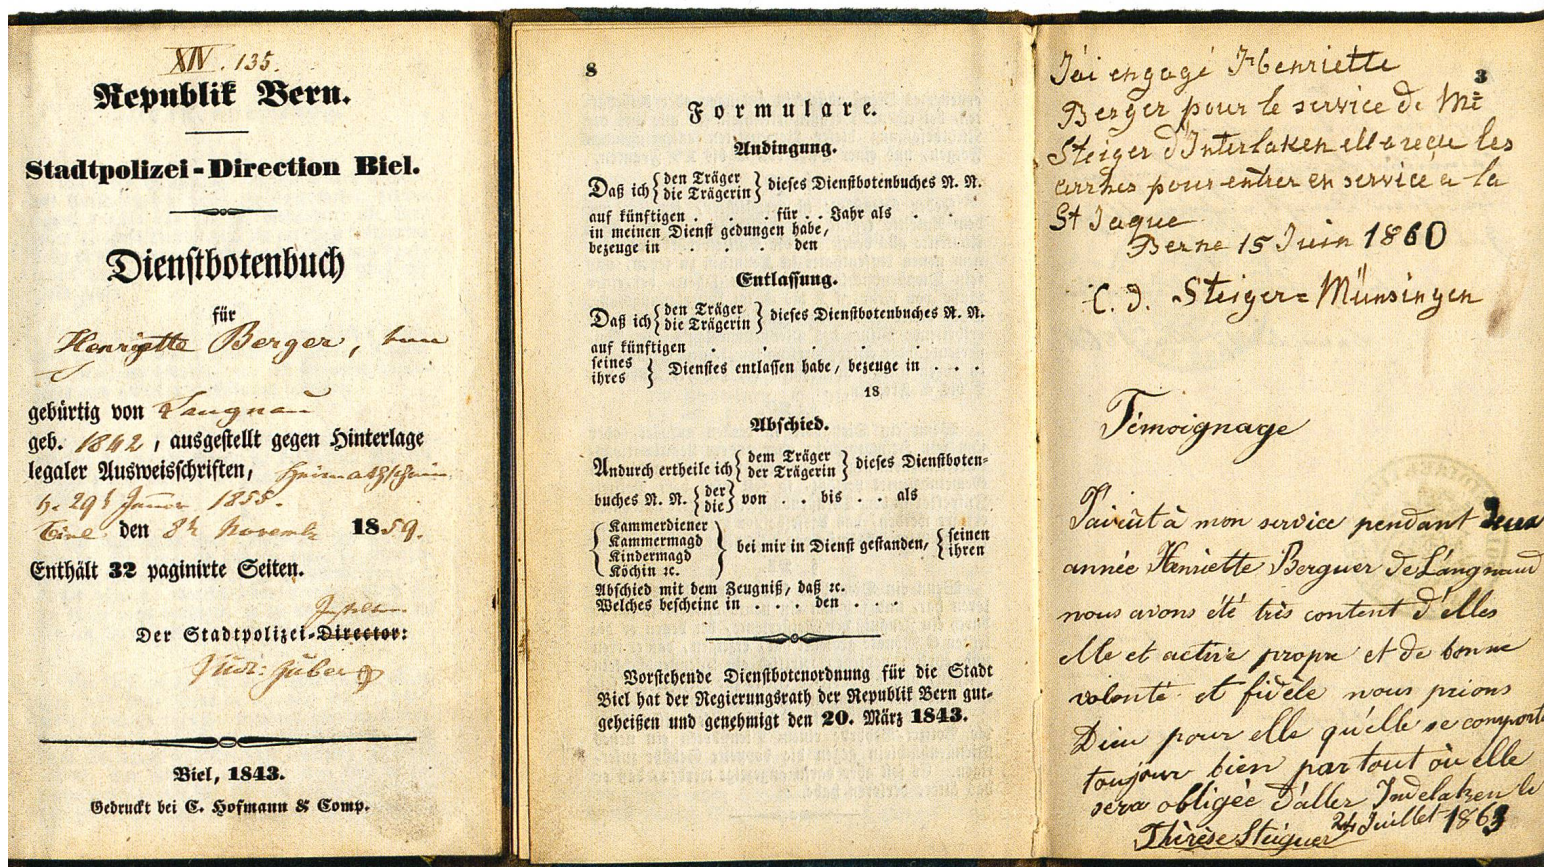 XIV. 135.
Republik Bern.
Stadtpolizei-Direction Biel.
Dienstbotenbuch
für
Henriette Berger,
gebürtig von Langnau
geb. 1842, ausgestellt gegen Hinterlage
legaler Ausweisschriften, Heimathschein
29t Januar 1855.
Biel den 8t Novemb 1859.
Enthält 32 paginirte Seiten.
Der Stadtpolizei-Director:
Biel, 1843.
Gedruckt bei C. Hofmann & Comp.
8
Formulare.
Andingung.
Daß ich { den Träger / die Trägerin } dieses Dienstbotenbuches N. N.
auf künftigen . . . für . . Jahr als . .
in meinen Dienst gedungen habe,
bezeuge in . . . . den
Entlassung.
Daß ich { den Träger / die Trägerin } dieses Dienstbotenbuches N. N.
auf künftigen . . . . .
seines / ihres } Dienstes entlassen habe, bezeuge in . . .
18
Abschied.
Andurch ertheile ich { dem Träger / der Trägerin } dieses Dienstboten-
buches N. N. { der / die } von . . bis . . als
{ Kammerdiener
Kammermagd
Kindermagd
Köchin ꝛc. } bei mir in Dienst gestanden, { seinen / ihren
Abschied mit dem Zeugniß, daß ꝛc.
Welches bescheine in . . . den .
Vorstehende Dienstbotenordnung für die Stadt
Biel hat der Regierungsrath der Republik Bern gut-
geheißen und genehmigt den 20. März 1843.
3
J'ai engagé Henriette
Berger pour le service de Mr
Steiger d'Interlaken elle a reçue les
arrhes pour entrer en service a la
St Jaque
Berne 15 Juin 1860
C. d. Steiger=Münsingen
Témoignage
J'ai eût à mon service pendant deux
année Henriette Berguer de Lángnaud
nous avons été très content d'elles
elle et active propre et de bonne
volonté et fidèle nous prions
Dieu pour elle qu'elle se comporte
toujour bien partout où elle
sera obligée d'aller Indelaken le
24 Juillet 1863
Thérèse Steiguer